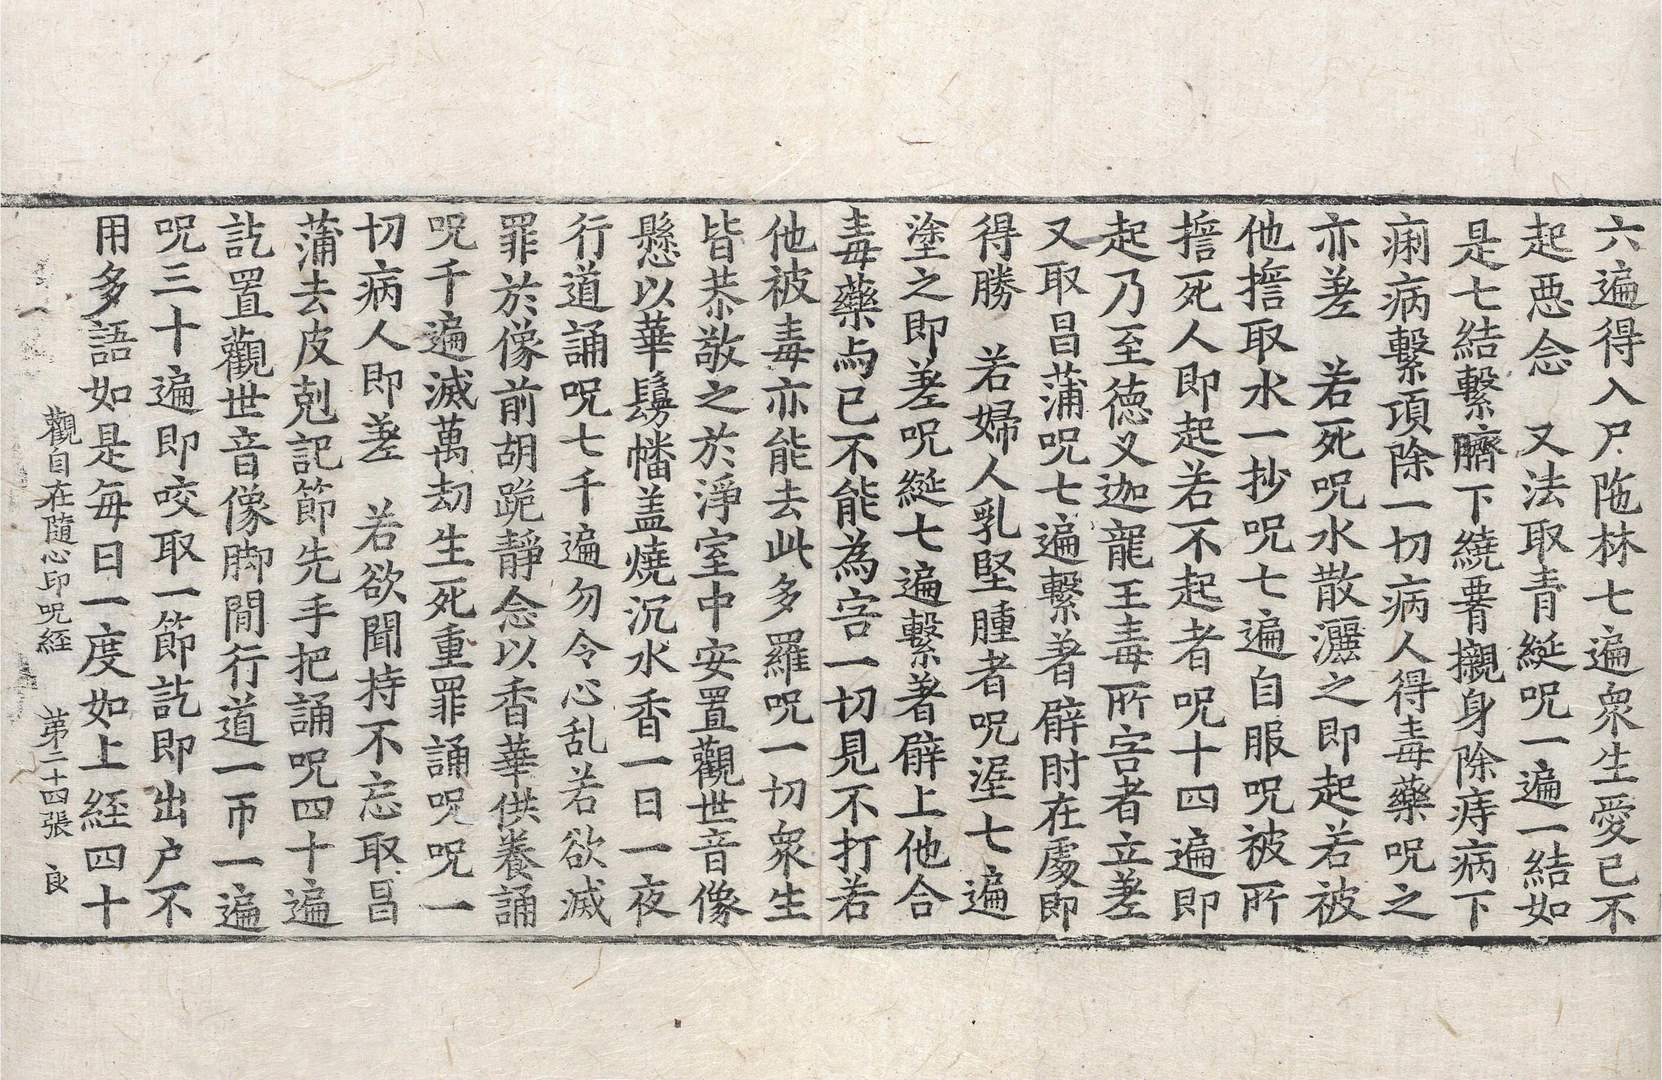 六遍得入尸陁林七遍衆生愛已不
起惡念　又法取青綖呪一遍一結如
是七結繫臍下繞䏚襯身除痔病下
痢病繫項除一切病人得毒藥呪之
亦差　若死呪水散灑之即起若被
他擔取水一抄呪七遍自服呪被所
擔死人即起若不起者呪十四遍即
起乃至德叉迦龍王毒所害者立差
又取昌蒲呪七遍繫著臂肘在處即
得勝　若婦人乳堅腫者呪涅七遍
塗之即差呪綖七遍繫著臂上他合
毒藥与已不能為害一切見不打若
他被毒亦能去此多羅呪一切衆生
皆恭敬之於淨室中安置觀世音像
懸以華鬘幡盖燒沉水香一日一夜
行道誦呪七千遍勿令心乱若欲滅
罪於像前胡跪靜念以香華供養誦
呪千遍滅萬劫生死重罪誦呪呪一
切病人即差　若欲聞持不忘取昌
蒲去皮剋記節先手把誦呪四十遍
訖置觀世音像脚閒行道一帀一遍
呪三十遍即咬取一節訖即出户不
用多語如是每日一度如上經四十
觀自在隨心印呪經　第二十四張　良